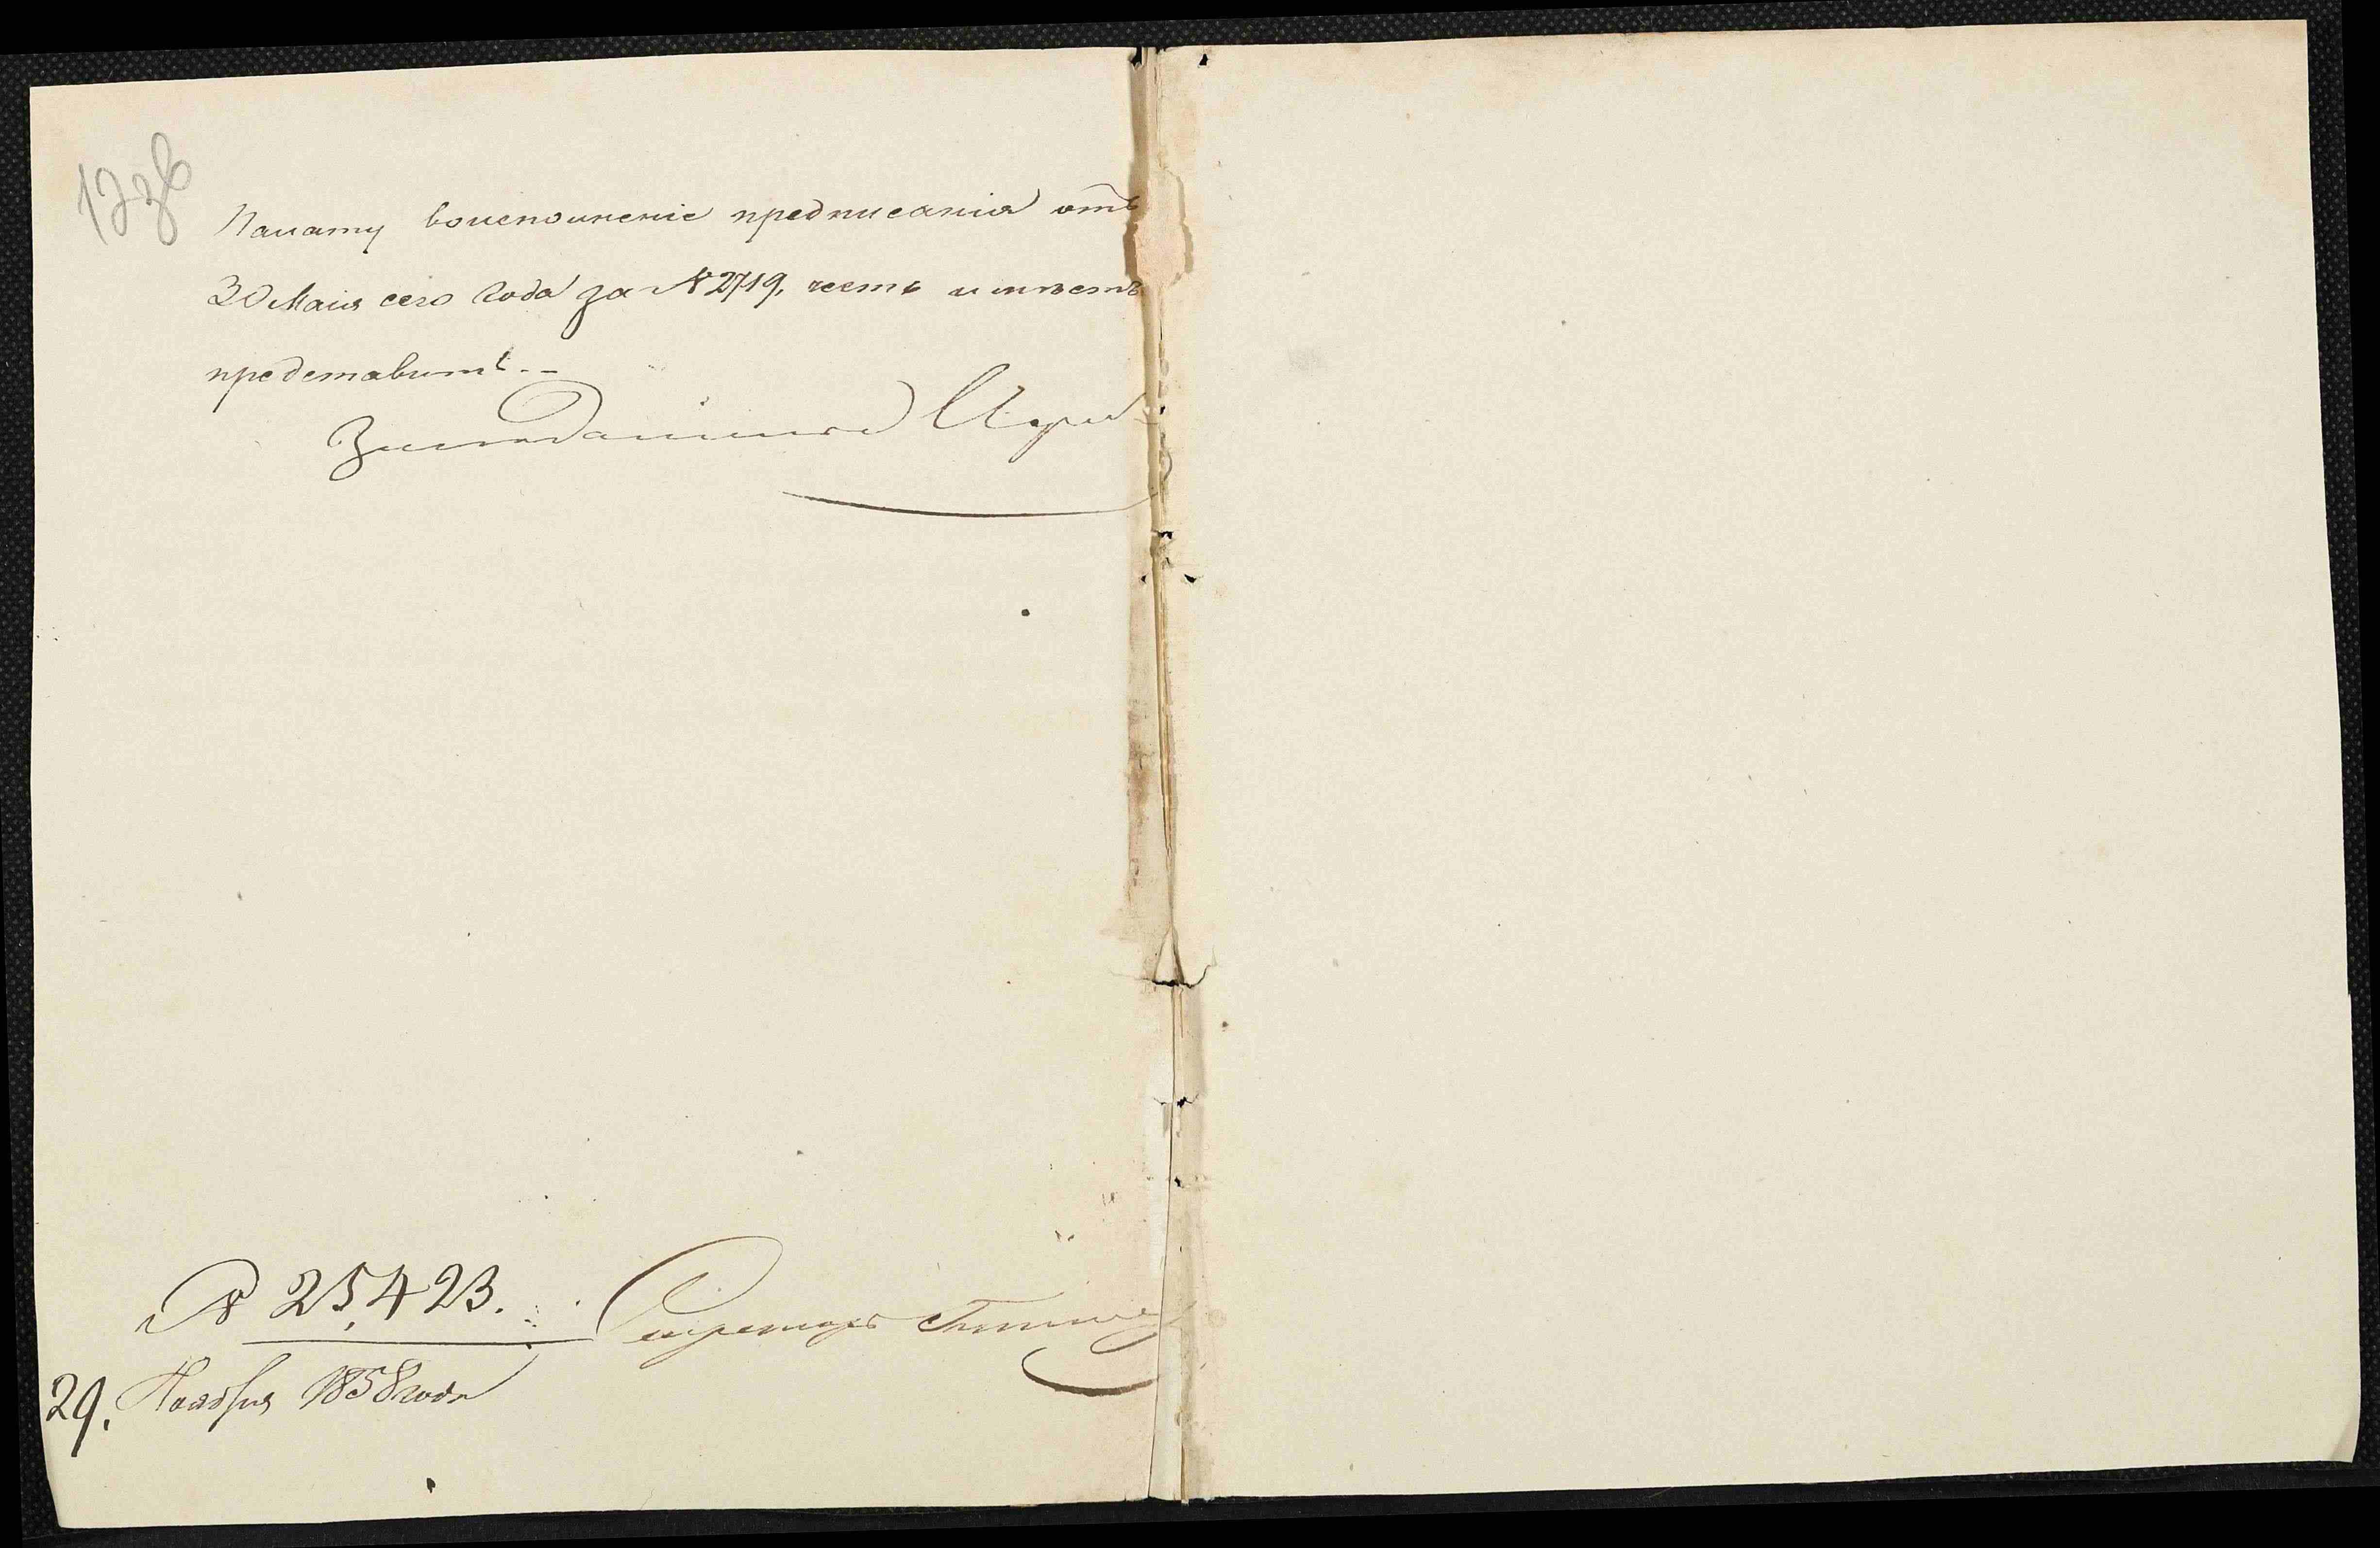 Палату во исполнение предписания отъ
30 Мая сего года за № 2719, честь имѣетъ
представить.
Засѣдатель
№ 25,423. Секретарь
29. Ноября 1858 года